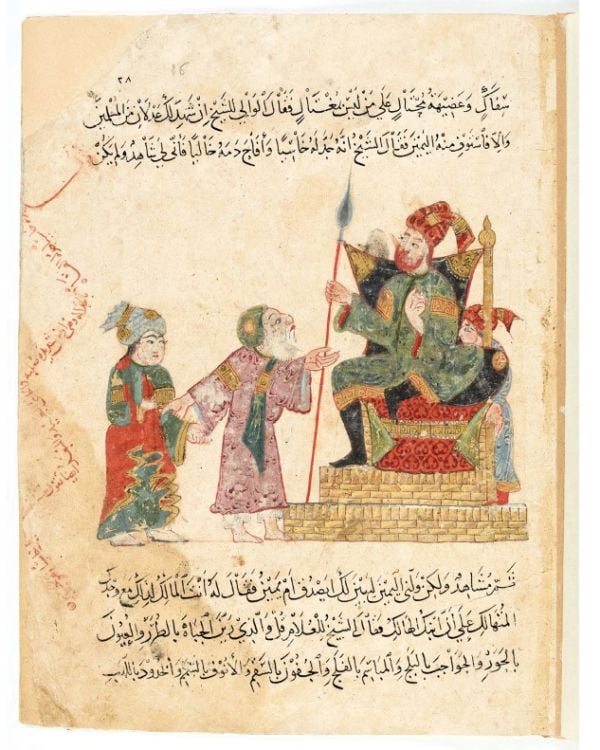 ٣٨
سفاك وعضيهة محتال على من ليس بمغتال فقال الوالي للشيخ ان شهد لك عدلان من المسلمين
والا فاستوف منه اليمين فقال الشيخ انه جدله خاسيا وأفاح دمه خاليا فأنى لي شاهد ولم يكن
ثم مشاهد ولكن ولني اليمين ليبين لك ايصدق ام يمين فقال له أنت المالك لذلك مع وجدك
المتهالك على ابنك الهالك فقال الشيخ للغلام قل والذي زين الجباه بالطرر والعيون
بالحور والحواجب بالبلج والمباسم بالفلج والجفون بالسقم والأنوف بالشمم والخدود باللهب